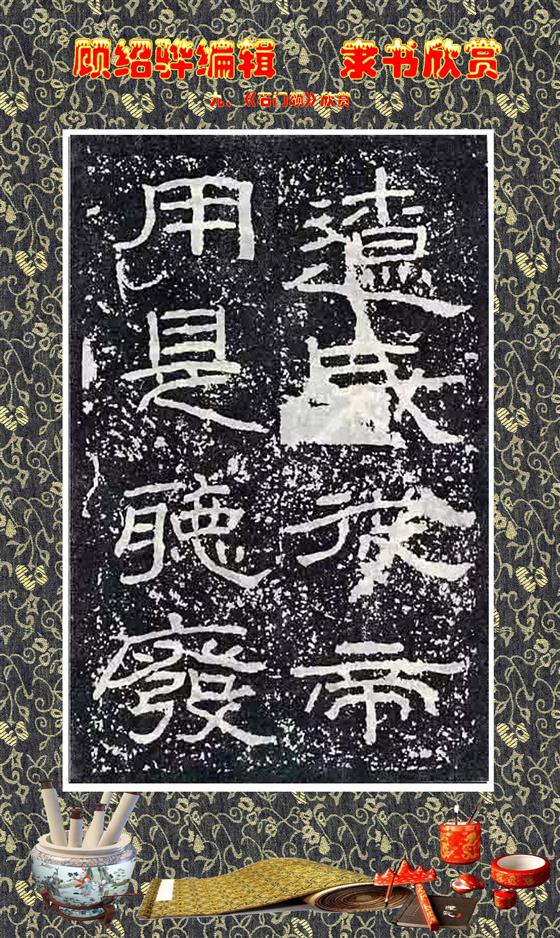 顾绍骅编辑 隶书欣赏
九、《石门颂》欣赏
遼咸從帝
用是聽廢